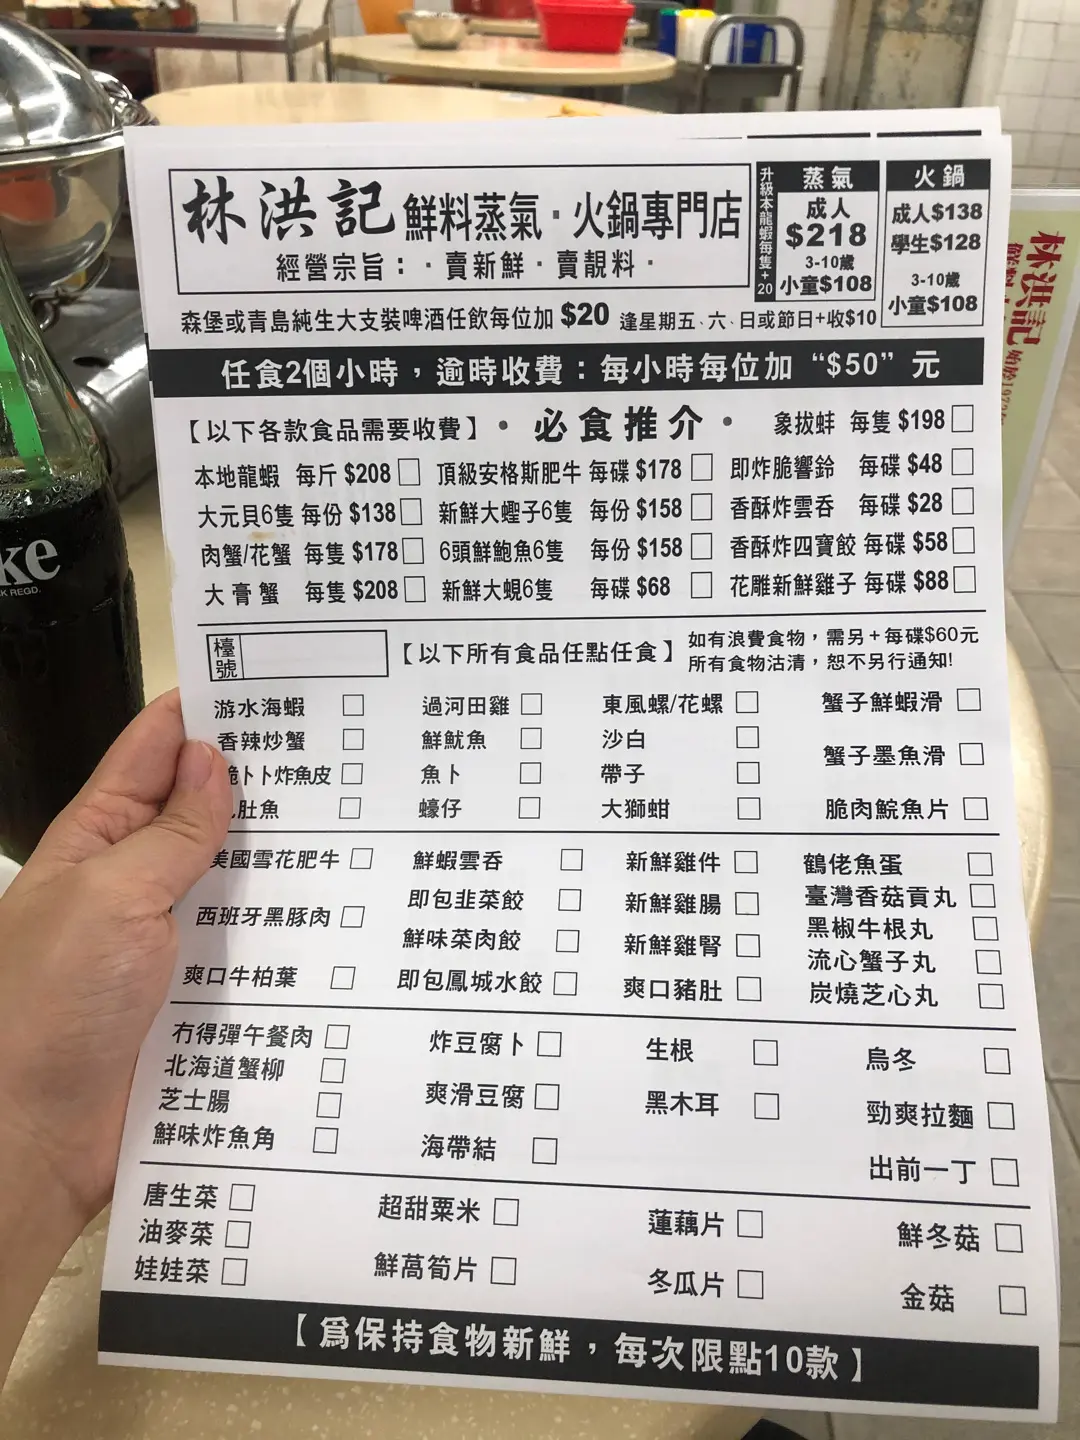 林洪記 鮮料蒸氣·火鍋專門店
經營宗旨：·賣新鮮·賣靚料·
升級本龍蝦每隻+20
蒸氣
成人
$218
3-10歲
小童$108
火鍋
成人$138
學生$128
3-10歲
小童$108
森堡或青島純生大支裝啤酒任飲每位加 $20 逢星期五、六、日或節日+收$10
任食2個小時，逾時收費：每小時每位加 “$50” 元
【以下各款食品需要收費】·必食推介· 象拔蚌 每隻 $198
本地龍蝦 每斤 $208 頂級安格斯肥牛 每碟 $178 即炸脆響鈴 每碟 $48
大元貝6隻 每份 $138 新鮮大蟶子6隻 每份 $158 香酥炸雲吞 每碟 $28
肉蟹/花蟹 每隻 $178 6頭鮮鮑魚6隻 每份 $158 香酥炸四寶餃 每碟 $58
大膏蟹 每隻 $208 新鮮大蜆6隻 每碟 $68 花雕新鮮雞子 每碟 $88
檯號 【以下所有食品任點任食】 如有浪費食物，需另+每碟$60元
所有食物沽清，恕不另行通知!
游水海蝦 過河田雞 東風螺/花螺 蟹子鮮蝦滑
香辣炒蟹 鮮魷魚 沙白 蟹子墨魚滑
脆卜卜炸魚皮 魚卜 帶子
肚魚 蠔仔 大獅蚶 脆肉鯇魚片
美國雪花肥牛 鮮蝦雲吞 新鮮雞件 鶴佬魚蛋
即包韭菜餃 新鮮雞腸 臺灣香菇貢丸
西班牙黑豚肉 鮮味菜肉餃 新鮮雞腎 黑椒牛根丸
流心蟹子丸
爽口牛柏葉 即包鳳城水餃 爽口豬肚 炭燒芝心丸
冇得彈午餐肉 炸豆腐卜 生根 烏冬
北海道蟹柳
芝士腸 爽滑豆腐 黑木耳 勁爽拉麵
鮮味炸魚角 海帶結 出前一丁
唐生菜 超甜粟米 蓮藕片 鮮冬菇
油麥菜
娃娃菜 鮮萵筍片 冬瓜片 金菇
【爲保持食物新鮮，每次限點10款】
ke
REGD.
林洪記